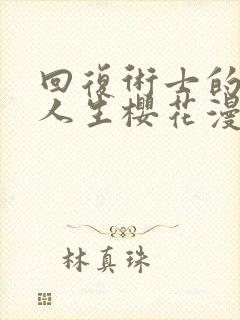 回復術士的
人生櫻花漫
林真珠